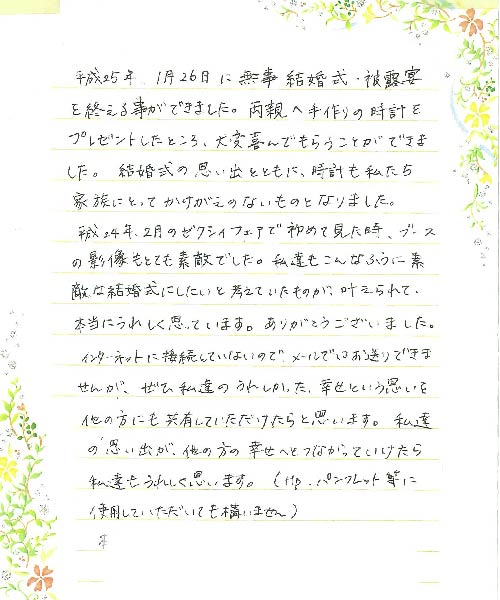 平成25年、1月26日に無事結婚式・披露宴
を終える事ができました。両親へ手作りの時計を
プレゼントしたところ、大変喜んでもらうことができま
した。結婚式の思い出とともに、時計も私たち
家族にとってかけがえのないものとなりました。
平成24年、2月のゼクシィフェアで初めて見た時、ブース
の影像もとても素敵でした。私達もこんなふうに素
敵な結婚式にしたいと考えていたものが、叶えられて、
本当にうれしく思っています。ありがとうございました。
インターネットに接続していないので、メールではお送りできま
せんが、ぜひ私達のうれしかった、幸せという思いを
他の方にも共有していただけたらと思います。私達
の思い出が、他の方の幸せへとつながっていけたら
私達もうれしく思います。(Hp、パンフレット等に
使用していただいても構いません)